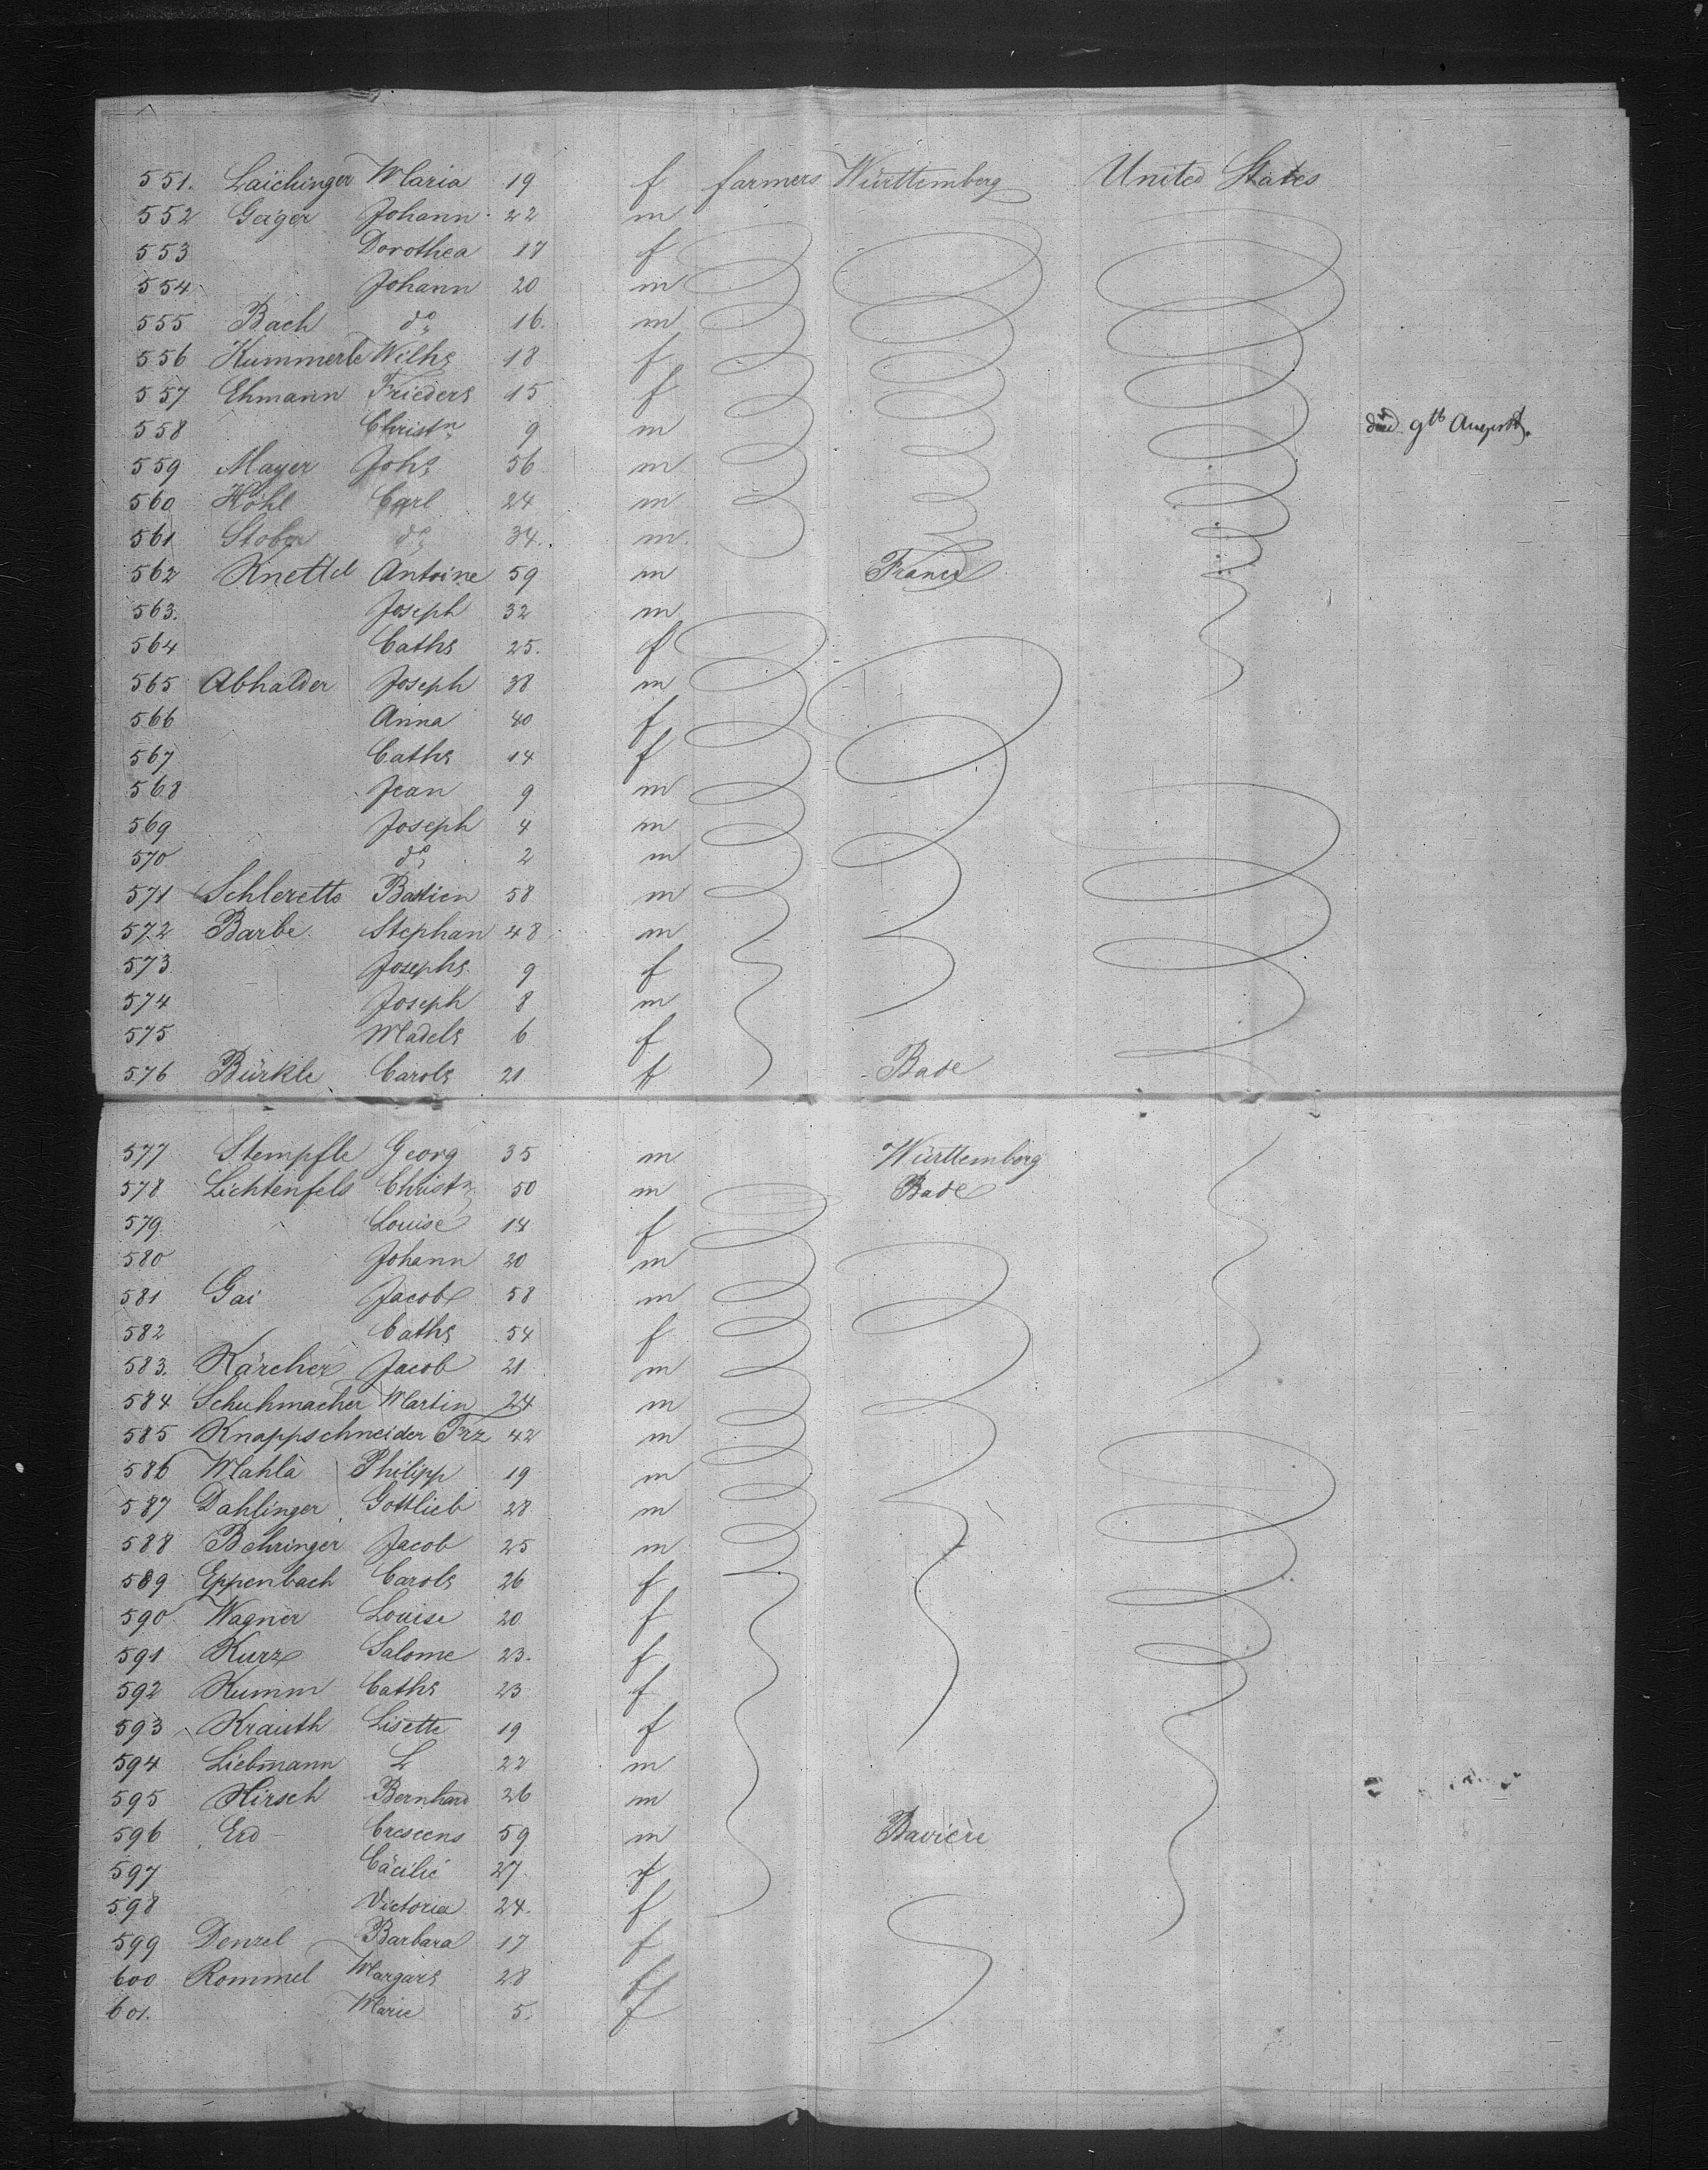 551. Laichinger Maria 19 f farmers Württemberg United States
552 Geiger Johann 22 m
553 Dorothea 17 f
554 Johann 20 m
555 Bach do 16. m
556 Kummerle Wilhe 18 f
557 Ehmann Friedere 15 f
558 Christn 9 m died 9th August.
559 Mayer Johs 56 m
560 Höhl Carl 24 m
561 Stober do 34. m
562 Knettel Antoine 59 m France
563. Joseph 32 m
564 Cathe 25. f
565 Abhalder Joseph 38 m
566 Anna 40 f
567 Cathe 14 f
568 Jean 9 m
569 Joseph 4 m
570 do 2 m
571 Schleretts Bastien 58 m
572 Barbe Stephan 48 m
573 Josephe 9 f
574 Joseph 8 m
575 Madele 6 f
576 Bürkle Carole 21 f Bade
577 Stempfle Georg 35 m Württemberg
578 Lichtenfels Christn 50 m Bade
579 Louise 14 f
580 Johann 20 m
581 Gai Jacob 58 m
582 Cathe 54 f
583. Kärcher Jacob 21 m
584 Schuhmacher Martin 24 m
585 Knappschneider Frz 42 m
586 Mahla Philipp 19 m
587 Dahlinger Gottlieb 28 m
588 Bohringer Jacob 25 m
589 Eppenbach Carole 26 f
590 Wagner Louise 20 f
591 Kurz Salome 23. f
592 Kumm Cathe 23 f
593 Krauth Lisette 19 f
594 Liebmann L 22 m
595 Hirsch Bernhard 26 m
596 Erd Crescens 59 m Bavière
597 Cäcilie 27. f
598 Victoria 24. f
599 Denzel Barbara 17 f
600 Rommel Margare 28 f
601. Marie 5. f